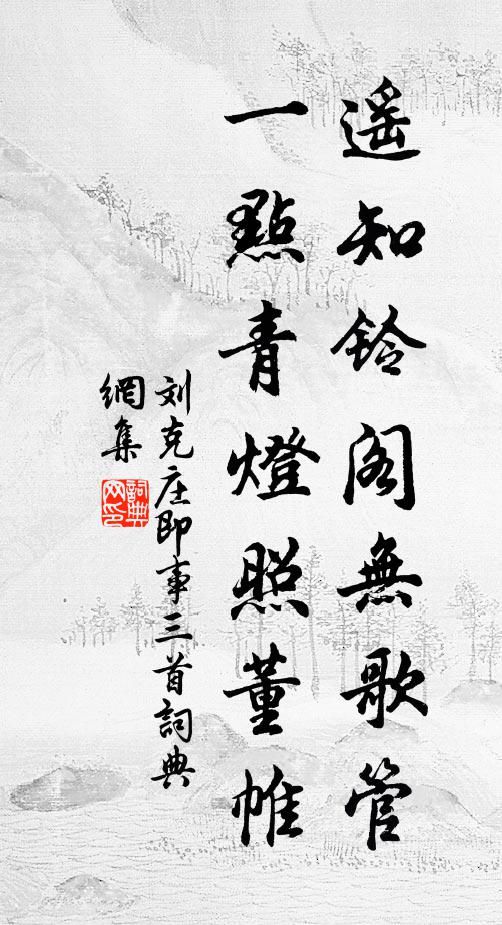 遥知鈴阁無歌管
一點青燈照董帷
刘克庄即事三首詞典
網集
詞典
网印